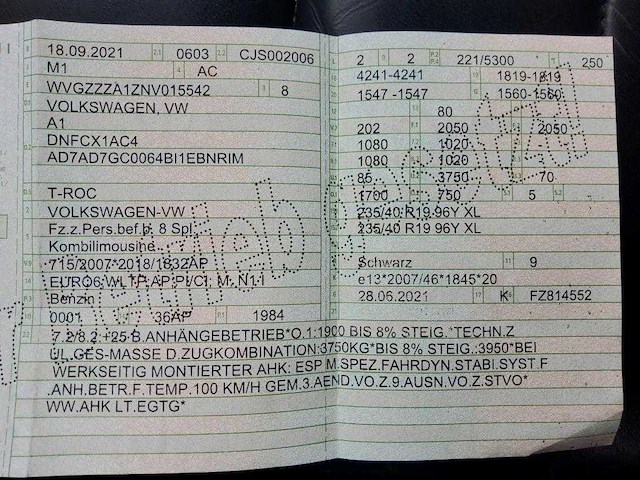 18.09.2021 0603 CJS002006
M1 AC
WVGZZZA1ZNV015542 8
VOLKSWAGEN, VW
A1
DNFCX1AC4
AD7AD7GC0064BI1EBNRIM
T-ROC
VOLKSWAGEN-VW
Fz.z.Pers.bef.b. 8 Spl.
Kombilimousine
715/2007*2018/1832AP
EURO6;WLTP;AP;PI/CI; M, N1 I
Benzin
0001 36AP 1984
2 2 221/5300 250
4241-4241 1819-1819
1547 -1547 1560-1560
80
202 2050 2050
1080 1020
1080 1020
85 3750 70
1700 750 5
235/40 R19 96Y XL
235/40 R19 96Y XL
Schwarz 9
e13*2007/46*1845*20
28.06.2021 K FZ814552
7.2/8.2:+25 B.ANHÄNGEBETRIEB*O.1:1900 BIS 8% STEIG.*TECHN.Z
UL.GES-MASSE D.ZUGKOMBINATION:3750KG*BIS 8% STEIG.:3950*BEI
WERKSEITIG MONTIERTER AHK: ESP M.SPEZ.FAHRDYN.STABI.SYST.F
.ANH.BETR.F.TEMP.100 KM/H GEM.3.AEND.VO.Z.9.AUSN.VO.Z.STVO*
WW.AHK LT.EGTG*